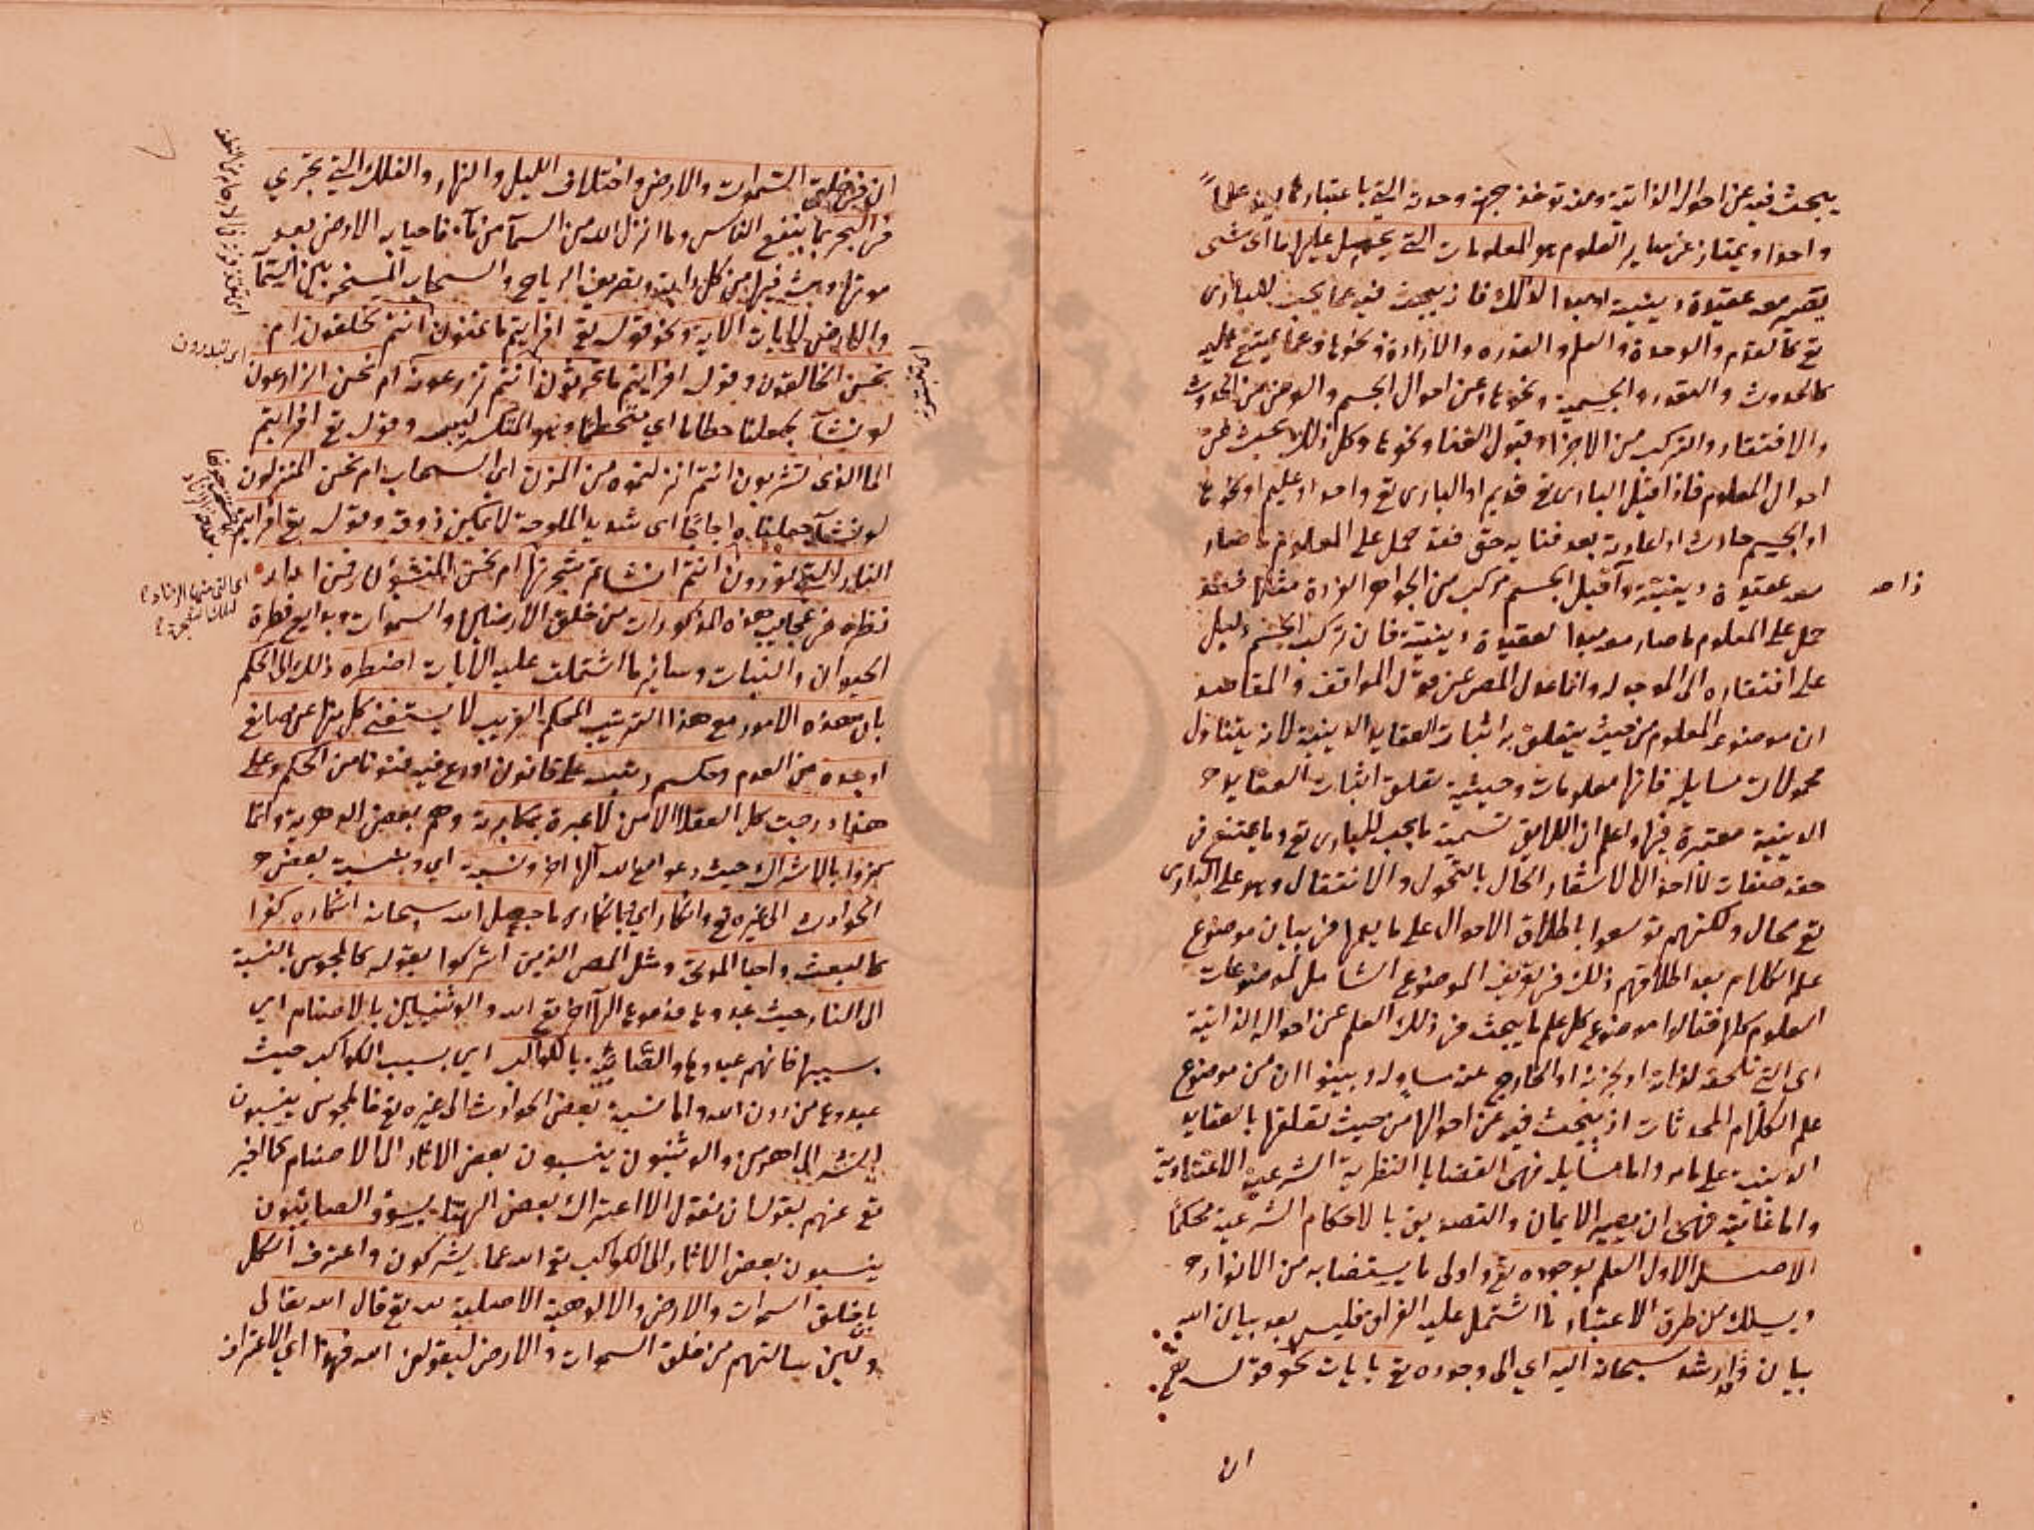 يبحث فيه عن احواله الذاتية ومنه توخذ جهة وحدته التى باعتبارها يعد علماً
واحدا ويمتاز عن ساير العلوم هو المعلومات التى يحمل عليها ما اى شىء
يصير معه عقيدة دينية او مبدا لذلك فانه يبحث فيه عما يجب للبارى
تع كالقدم والوحدة والعلم والقدره والارادة ونحوها وعما يمتنع عليه
كالحدوث والتعدد والجسمية ونحوها وعن احوال الجسم والعرض من الحدوث
والافتقار والتركب من الاجزا وقبول الفنا ونحوها وكل ذلك بحث عن
احوال المعلوم فاذا قيل البارى تع قديم او البارى تع واحد او عليم او نحوها
او الجسم حادث او اعادته بعد فنايه حق فقد حمل على المعلوم ما صار
معه عقيدة دينية واذا قيل الجسم مركب من الجواهر الفردة مثلا فقد
حمل على المعلوم ما صار معه مبدا لعقيدة دينية فان تركب الجسم دليل
على افتقاره الى الموجد له وانما عدل المص عن قول المواقف والمقاصد
ان موضوعه المعلوم من حيث يتعلق به اثبات العقايد الدينية لانه يتناول
محمولات مسايله فانها معلومات وحيثية تعلق اثبات العقايد
الدينية معتبرة فيها واعلم ان اللايق تسمية ما يجب للبارى تع وما يمتنع فى
حقه صفات لا احوالا لاشعار الحال بالتحول والانتقال وهو على البارى
تع محال ولكنهم توسعوا باطلاق الاحوال على ما يعمها فى بيان موضوع
علم الكلام بعد اطلاقهم ذلك فى تعريف الموضوع الشامل لموضوعات
العلوم كلها فقالوا موضوع كل علم ما يبحث فى ذلك العلم عن احواله الذاتية
اى التى تلحقه لذاته او لجزئه او لخارج عنه مساو له وبينوا ان من موضوع
علم الكلام المحدثات اذ يبحث فيه عن احوالها من حيث تعلقها بالعقايد
الدينية على ما مر واما مسايله فهى القضايا النظرية الشرعية الاعتقادية
واما غايته فهى ان يصير الايمان والتصديق بالاحكام الشرعية محكماً
الاصل الاول العلم بوجوده تع واولى ما يستضا به من الانوار
ويسلك من طرق الاعتبار ما اشتمل عليه القران فليس بعد بيان الله
بيان وارشد سبحانه اليه اي الى وجوده تع بايات نحو قوله تع
ان
ان فى خلق السموات والارض واختلاف الليل والنهار والفلك التى تجري
فى البحر بما ينفع الناس وما انزل الله من السمآ من مآء فاحيا به الارض بعد
موتها وبث فيها من كل دابة وتصريف الرياح والسحاب المسخر بين السمآ
والارض لايات الاية ونحو قوله تع افرايتم ما تمنون اانتم تخلقونه ام
نحن الخالقون وقوله افرايتم ما تحرثون اانتم تزرعونه ام نحن الزارعون
لو نشآ لجعلناه حطاما اي متحطما وهو المتكسر ليبسه وقوله تع افرايتم
الما الذى تشربون اانتم انزلتموه من المزن اي السحاب ام نحن المنزلون
لو نشآ جعلناه اجاجا اى شديد الملوحة لا يمكن ذوقه وقوله تع افرايتم
النار التى تورون اانتم انشاتم شجرتها ام نحن المنشؤن فمن ادار
نظره فى عجايب هذه المذكورات من خلق الارضين والسموات وبدايع فطرة
الحيوان والنبات وساير ما اشتملت عليه الايات اضطره ذلك الى الحكم
بان هذه الامور مع هذا الترتيب المحكم الغريب لا يستغنى كل منها عن صانع
اوجده من العدم وحكيم رتبه على قانون اودع فيه فنونا من الحكم وعلى
هذا درجت كل العقلا الا من لا عبرة بمكابرته وهم بعض الدهرية وانما
كفروا بالاشراك حيث دعوا مع الله آلها اخر ونسبة اي وبنسبة بعض
الحوادث الى غيره تع وانكار اي بانكار ما جعل الله سبحانه انكاره كفرا
كالبعث واحيا الموتى ومثل المص الذين اشركوا بقوله كالمجوس بالنسبة
الى النار حيث عبدوها فدعوها الها اخر تع الله والوثنيين بالاصنام اي
بسببها فانهم عبدوها والصابئة بالكواكب اي بسبب الكواكب حيث
عبدوها من دون الله واما نسبة بعض الحوادث الى غيره تع فالمجوس ينسبون
الشر الى اهرمن والوثنيون ينسبون بعض الاثار الى الاصنام كما اخبر
تع عنهم بقوله ان نقول الا اعتراك بعض الهتنا بسوٓء والصابئون
ينسبون بعض الاثار الى الكواكب تع الله عما يشركون واعترف الكل
بان خلق السموات والارض والالوهية الاصلية لله تع قال الله تعالى
ولئن سالتهم من خلق السموات والارض ليقولن الله فهذا اي الاعتراف